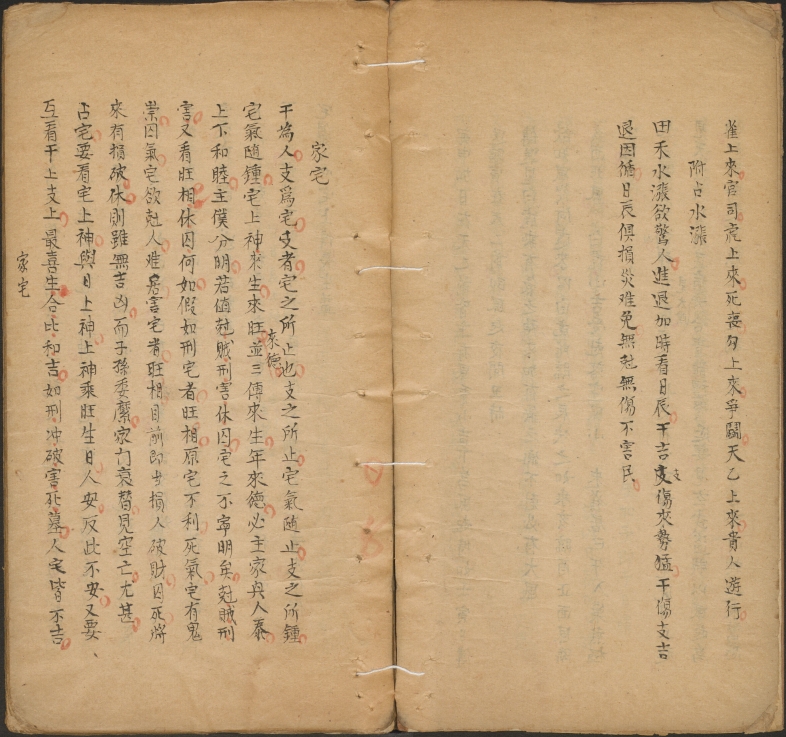 雀上來官司虎上來死喪勾上來爭鬭天乙上來貴人遊行
附占水漲
田禾水漲欲驚人進退加時看日辰干吉支傷來勢猛干傷支吉
退因循日辰俱損災难免無尅無傷不害民
家宅
干為人支爲宅支者宅之所止也支之所止宅氣隨止支之所鍾
宅氣隨鍾宅上神來生來旺並三傳來生年來德必主家興人泰
來德
上下和睦主僕分明若值尅賊刑害休囚宅之不寧明矣尅賊刑
害又看旺相休囚何如假如刑宅者旺相原宅不利死氣宅有鬼
祟囚氣宅欲尅人难害宅者旺相目前即步損人破財囚死將
來有損破休則雖無吉凶而子孫委靡家门衰替見空亡尤甚
占宅要看宅上神與日上神上神乘旺生日人安反此不安又要
互看干上支上最喜生合比和吉如刑冲破害死墓人宅皆不吉
家宅